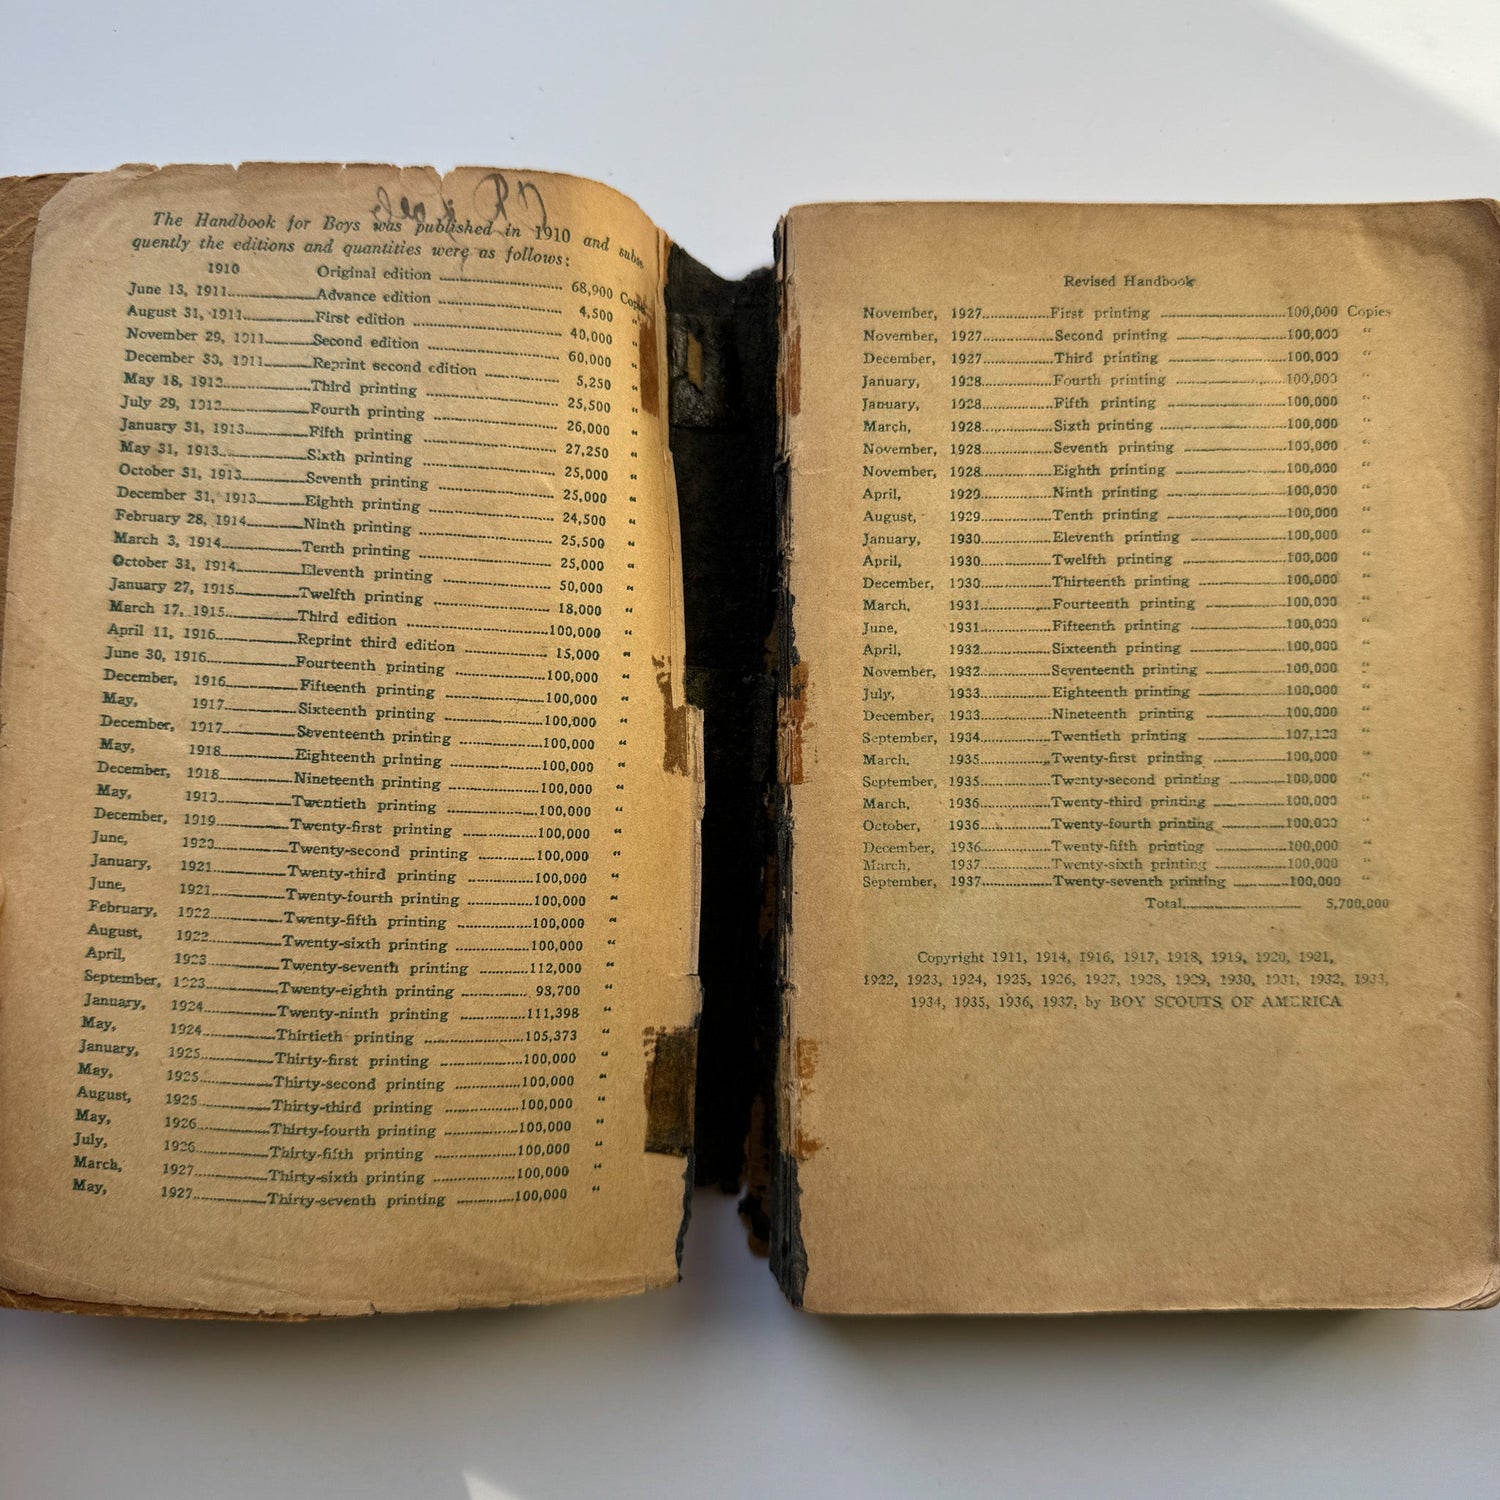 The Handbook for Boys was published in 1910 and subse-
quently the editions and quantities were as follows:
1910 Original edition 68,900 Copies
June 13, 1911 Advance edition 4,500 "
August 31, 1911 First edition 40,000 "
November 29, 1911 Second edition 60,000 "
December 30, 1911 Reprint second edition 5,250 "
May 18, 1912 Third printing 25,500 "
July 29, 1912 Fourth printing 26,000 "
January 31, 1913 Fifth printing 27,250 "
May 31, 1913 Sixth printing 25,000 "
October 31, 1913 Seventh printing 25,000 "
December 31, 1913 Eighth printing 24,500 "
February 28, 1914 Ninth printing 25,500 "
March 3, 1914 Tenth printing 25,000 "
October 31, 1914 Eleventh printing 50,000 "
January 27, 1915 Twelfth printing 18,000 "
March 17, 1915 Third edition 100,000 "
April 11, 1916 Reprint third edition 15,000 "
June 30, 1916 Fourteenth printing 100,000 "
December, 1916 Fifteenth printing 100,000 "
May, 1917 Sixteenth printing 100,000 "
December, 1917 Seventeenth printing 100,000 "
May, 1918 Eighteenth printing 100,000 "
December, 1918 Nineteenth printing 100,000 "
May, 1919 Twentieth printing 100,000 "
December, 1919 Twenty-first printing 100,000 "
June, 1920 Twenty-second printing 100,000 "
January, 1921 Twenty-third printing 100,000 "
June, 1921 Twenty-fourth printing 100,000 "
February, 1922 Twenty-fifth printing 100,000 "
August, 1922 Twenty-sixth printing 100,000 "
April, 1923 Twenty-seventh printing 112,000 "
September, 1923 Twenty-eighth printing 93,700 "
January, 1924 Twenty-ninth printing 111,398 "
May, 1924 Thirtieth printing 105,373 "
January, 1925 Thirty-first printing 100,000 "
May, 1925 Thirty-second printing 100,000 "
August, 1925 Thirty-third printing 100,000 "
May, 1926 Thirty-fourth printing 100,000 "
July, 1926 Thirty-fifth printing 100,000 "
March, 1927 Thirty-sixth printing 100,000 "
May, 1927 Thirty-seventh printing 100,000 "
Revised Handbook
November, 1927 First printing 100,000 Copies
November, 1927 Second printing 100,000 "
December, 1927 Third printing 100,000 "
January, 1928 Fourth printing 100,000 "
January, 1928 Fifth printing 100,000 "
March, 1928 Sixth printing 100,000 "
November, 1928 Seventh printing 100,000 "
November, 1928 Eighth printing 100,000 "
April, 1929 Ninth printing 100,000 "
August, 1929 Tenth printing 100,000 "
January, 1930 Eleventh printing 100,000 "
April, 1930 Twelfth printing 100,000 "
December, 1930 Thirteenth printing 100,000 "
March, 1931 Fourteenth printing 100,000 "
June, 1931 Fifteenth printing 100,000 "
April, 1932 Sixteenth printing 100,000 "
November, 1932 Seventeenth printing 100,000 "
July, 1933 Eighteenth printing 100,000 "
December, 1933 Nineteenth printing 100,000 "
September, 1934 Twentieth printing 107,123 "
March, 1935 Twenty-first printing 100,000 "
September, 1935 Twenty-second printing 100,000 "
March, 1936 Twenty-third printing 100,000 "
October, 1936 Twenty-fourth printing 100,000 "
December, 1936 Twenty-fifth printing 100,000 "
March, 1937 Twenty-sixth printing 100,000 "
September, 1937 Twenty-seventh printing 100,000 "
Total 5,700,000
Copyright 1911, 1914, 1916, 1917, 1918, 1919, 1920, 1921,
1922, 1923, 1924, 1925, 1926, 1927, 1928, 1929, 1930, 1931, 1932, 1933,
1934, 1935, 1936, 1937, by BOY SCOUTS OF AMERICA